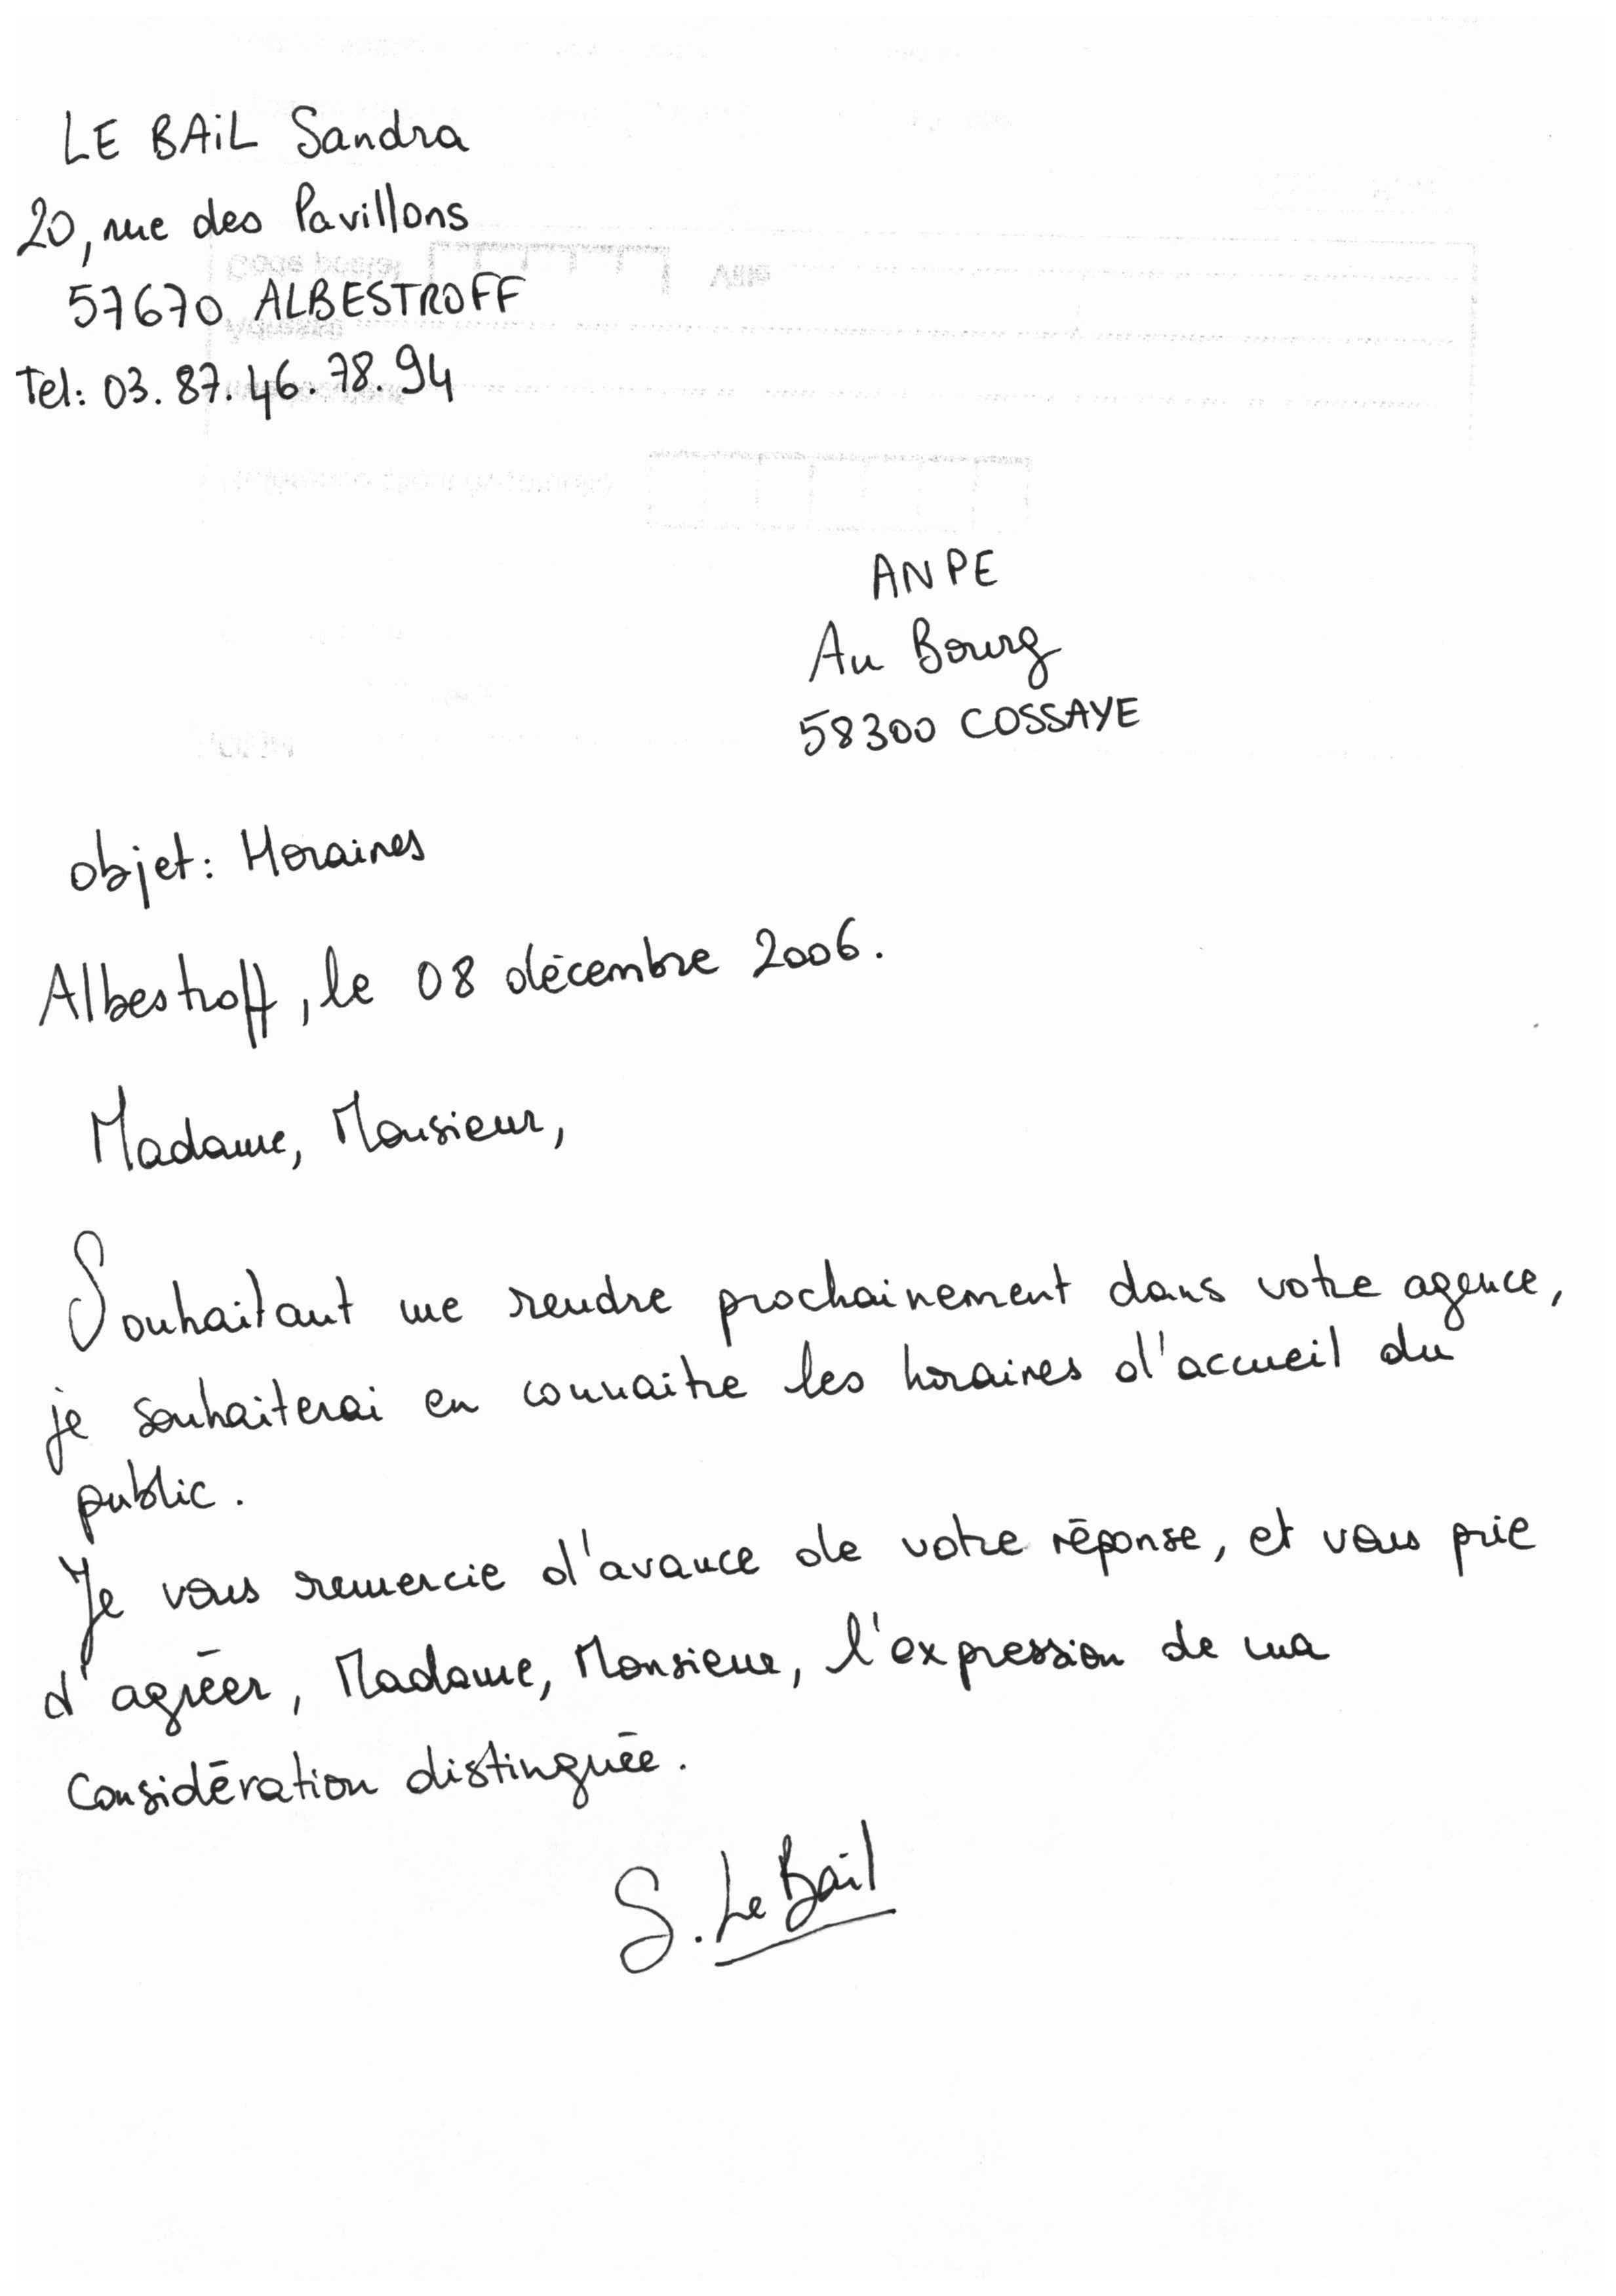 LE BAiL Sandra
20, rue des Pavillons
57670 ALBESTROFF
Tel: 03.87.46.78.94
ANPE
Au Bourg
58300 COSSAYE
objet: Horaires
Albestroff, le 08 décembre 2006.
Madame, Monsieur,
Souhaitant me rendre prochainement dans votre agence,
je souhaiterai en connaitre les horaires d'accueil du
public.
Je vous remercie d'avance de votre réponse, et vous prie
d'agréer, Madame, Monsieur, l'expression de ma
considération distinguée.
S. Le Bail